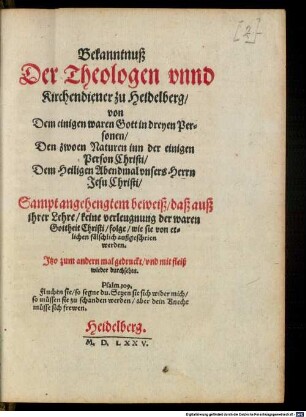 [2]
Bekanntnuß
Der Theologen vnnd
Kirchendiener zu Heidelberg/
von
Dem einigen waren Gott in dreyen Per-
sonen/
Den zwoen Naturen inn der einigen
Person Christi/
Dem Heiligen Abendmal vnsers Herrn
Jesu Christi/
Sampt angehengtem beweiß/ daß auß
ihrer Lehre/ keine verleugnung der waren
Gottheit Christi/ folge/ wie sie von et-
lichen fälschlich außgeschrien
werden.
Itzo zum andern mal gedruckt/ vnd mit fleiß
wider durchsehen.
Psalm 109.
Fluchen sie/ so segne du. Setzen sie sich wider mich/
so müssen sie zu schanden werden/ aber dein Knecht
müsse sich frewen.
Heidelberg.
M. D. LXXV.